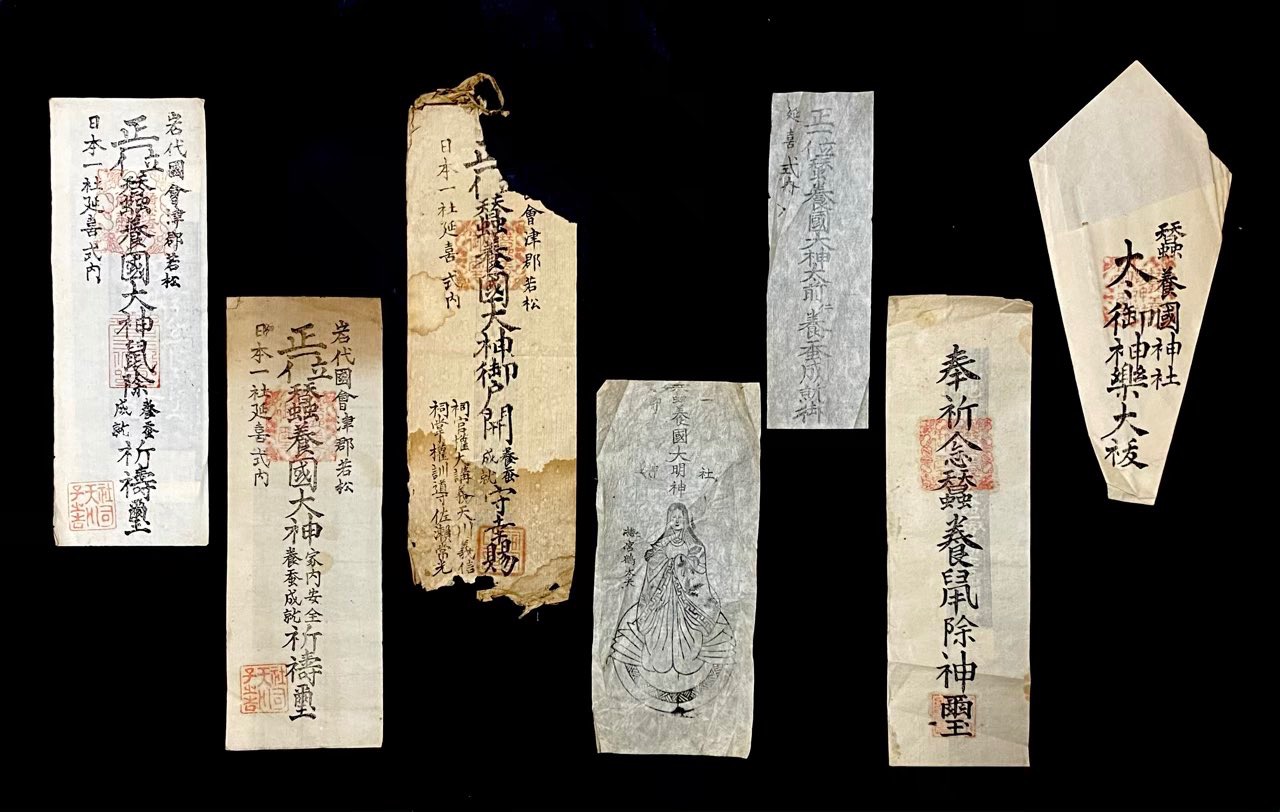 岩代國會津郡若松
正一位蠶養國大神鼠除養蚕成就祈禱璽
日本一社延喜式内
岩代國會津郡若松
正一位蠶養國大神家内安全養蚕成就祈禱璽
日本一社延喜式内
會津郡若松
正一位蠶養國大神御戸開養蚕成就守幸賜
日本一社延喜式内
祠官權大講義天川義信
祠掌權訓導佐瀬常光
一社
蠶養國大明神
正一位蠶養國大神太前
養蚕成就御
延喜式内
奉祈念蠶養鼠除神璽
蠶養國神社
太々御神樂大祓